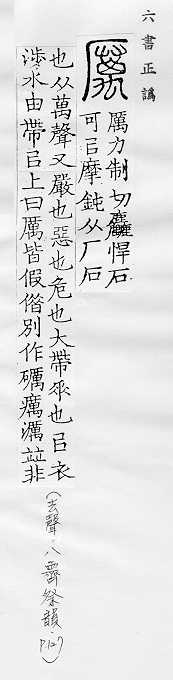 六書正譌
厲 厲力制切麤悍石
可㠯摩鈍从厂石
也从萬聲又嚴也惡也危也大帶𠂹也㠯衣
涉水由帶㠯上曰厲皆假偕別作礪癘濿竝非
(去聲·八霽祭韻·P.127)